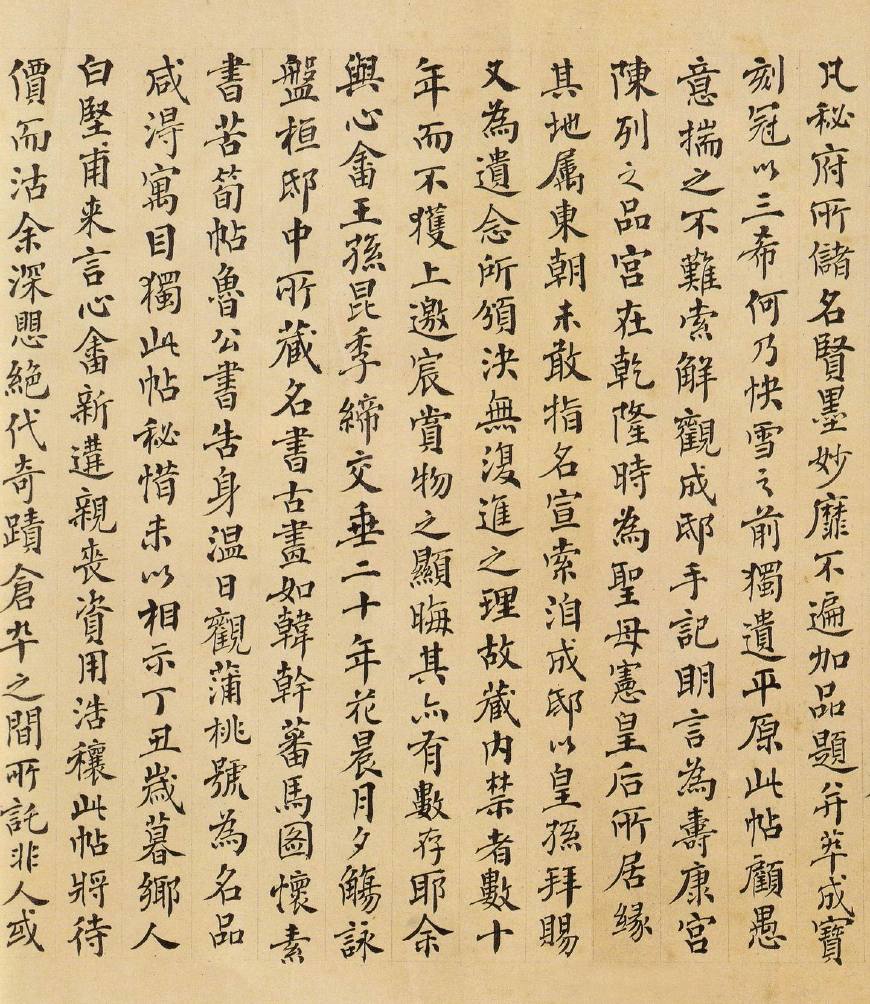 凡秘府所儲名賢墨妙靡不遍加品題并萃成寶
刻冠以三希何乃快雪之前獨遺平原此帖顧愚
意揣之不難索解觀成邸手記明言為壽康宮
陳列之品宮在乾隆時為聖母憲皇后所居緣
其地属東朝未敢指名宣索洎成邸以皇孫拜賜
又為遺念所頒決無復進之理故藏內禁者數十
年而不獲上邀宸賞物之顯晦其亦有數存耶余
與心畬王孫昆季締交垂二十年花晨月夕觴詠
盤桓邸中所藏名書古畫如韓幹蕃馬圖懷素
書苦筍帖魯公書告身溫日觀蒲桃號為名品
咸得寓目獨此帖秘惜未以相示丁丑歲暮鄉人
白堅甫来言心畬新遘親喪資用浩穰此帖將待
價而沽余深懼絕代奇蹟倉卒之間所託非人或